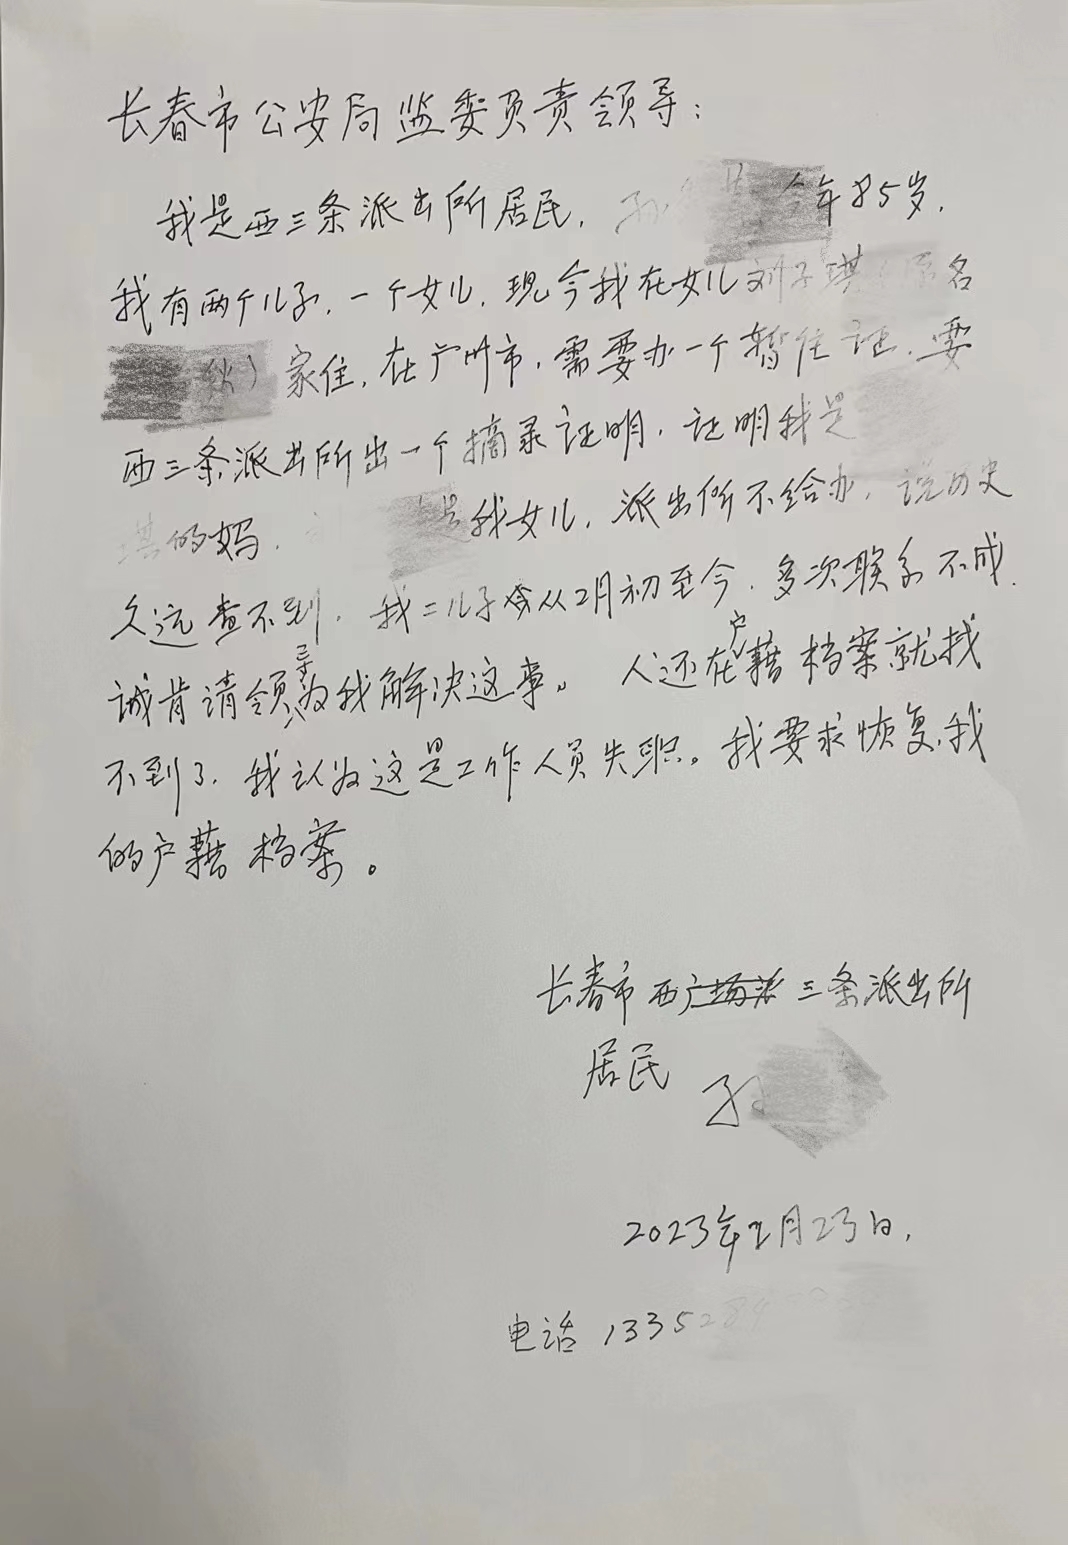 长春市公安局监委负责领导：
我是西三条派出所居民，孙 今年85岁，
我有两个儿子，一个女儿，现今我在女儿 名
伙）家住，在广州市，需要办一个暂住证，要
西三条派出所出一个摘录证明，证明我是
的妈， 是我女儿，派出所不给办，说历史
久远查不到，我二儿子从2月初至今，多次联系不成，
诚肯请领导为我解决这事。人还在户藉档案就找
不到了，我认为这是工作人员失职。我要求恢复我
的户藉档案。
长春市西三条派出所
居民 孙
2023年2月23日，
电话 1335